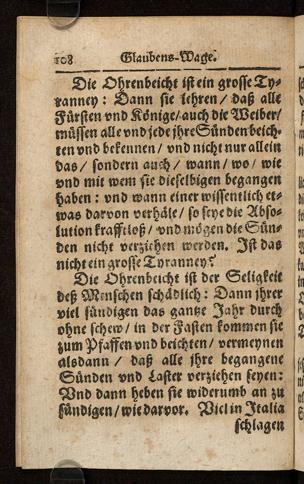 108 Glaubens-Wage.
Die Ohrenbeicht ist ein grosse Ty-
ranney: Dann sie lehren / daß alle
Fürsten vnd Könige/auch die Weiber/
müssen alle vnd jede jhre Sünden beich-
ten vnd bekennen / vnd nicht nur allein
das / sondern auch / wann / wo / wie
vnd mit wem sie dieselbigen begangen
haben: vnd wann einer wissentlich et-
was darvon verhäle / so seye die Abso-
lution krafftloß / vnd mögen die Sün-
den nicht verziehen werden. Ist das
nicht ein grosse Tyranney?
Die Ohrenbeicht ist der Seligkeit
deß Menschen schädlich: Dann jhrer
viel sündigen das gantze Jahr durch
ohne schew / in der Fasten kommen sie
zum Pfaffen vnd beichten / vermeynen
alsdann / daß alle jhre begangene
Sünden vnd Laster verziehen seyen:
Vnd dann heben sie widerumb an zu
sündigen / wie darvor. Viel in Italia
schlagen